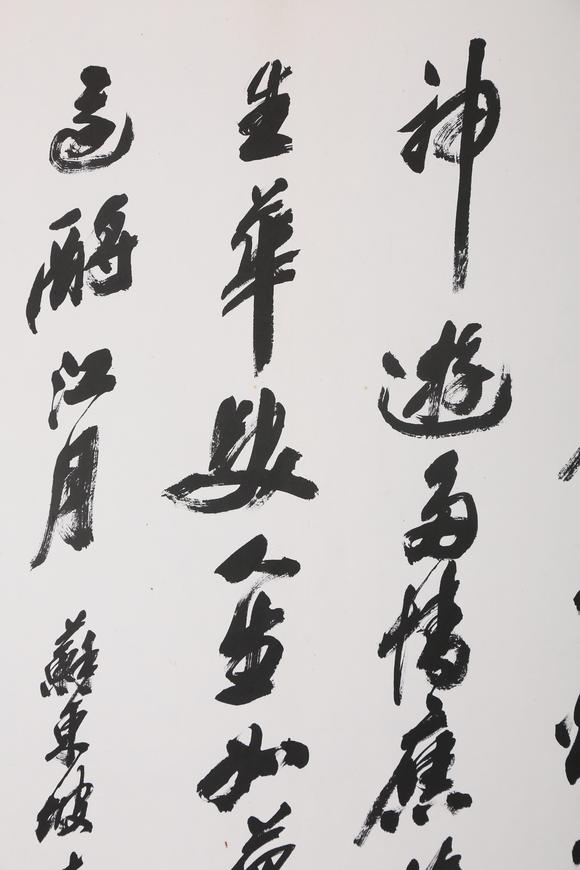 神遊多情應
生華髮人生如
還酹江月 蘇東坡